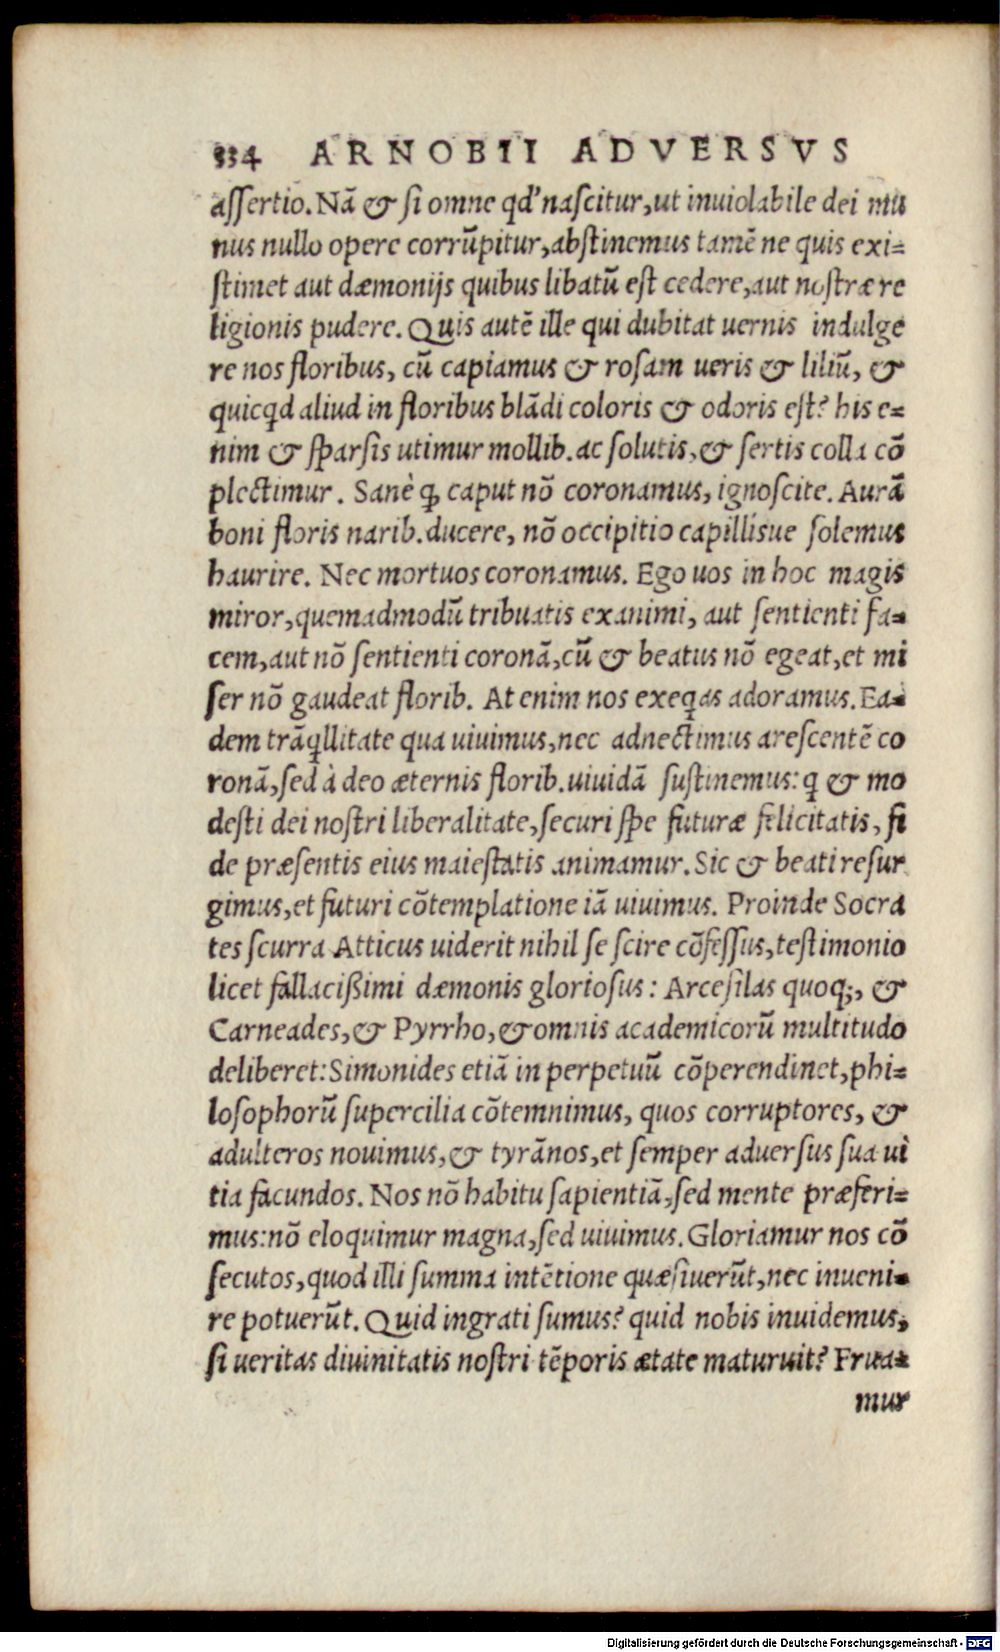 334 ARNOBII ADVERSVS
assertio. Nā & si omne qd' nascitur, ut inuiolabile dei mu
nus nullo opere corrūpitur, abstinemus tamē ne quis exi=
stimet aut dæmonijs quibus libatū est cedere, aut nostræ re
ligionis pudere. Quis autē ille qui dubitat uernis indulge
re nos floribus, cū capiamus & rosam ueris & liliū, &
quicꝗd aliud in floribus blādi coloris & odoris est? his e=
nim & sparsis utimur mollib. ac solutis, & sertis colla cō
plectimur. Sanè ꝙ caput nō coronamus, ignoscite. Aurā
boni floris narib. ducere, nō occipitio capillisue solemus
haurire. Nec mortuos coronamus. Ego uos in hoc magis
miror, quemadmodū tribuatis exanimi, aut sentienti fa=
cem, aut nō sentienti coronā, cū & beatus nō egeat, et mi
ser nō gaudeat florib. At enim nos exeꝗas adoramus. Ea=
dem trāꝗllitate qua uiuimus, nec adnectimus arescentē co
ronā, sed à deo æternis florib. uiuidā sustinemus: ꝗ & mo
desti dei nostri liberalitate, securi spe futuræ felicitatis, fi
de præsentis eius maiestatis animamur. Sic & beati resur
gimus, et futuri cōtemplatione iā uiuimus. Proinde Socra
tes scurra Atticus uiderit nihil se scire cōfessus, testimonio
licet fallacißimi dæmonis gloriosus: Arcesilas quoq;, &
Carneades, & Pyrrho, & omnis academicorū multitudo
deliberet: Simonides etiā in perpetuū cōperendinet, phi=
losophorū supercilia cōtemnimus, quos corruptores, &
adulteros nouimus, & tyrānos, et semper aduersus sua ui
tia facundos. Nos nō habitu sapientiā, sed mente præferi=
mus: nō eloquimur magna, sed uiuimus. Gloriamur nos cō
secutos, quod illi summa intētione quæsiuerūt, nec inueni=
re potuerūt. Quid ingrati sumus? quid nobis inuidemus,
si ueritas diuinitatis nostri tēporis ætate maturuit? Frua=
mur
Digitalisierung gefördert durch die Deutsche Forschungsgemeinschaft - DFG